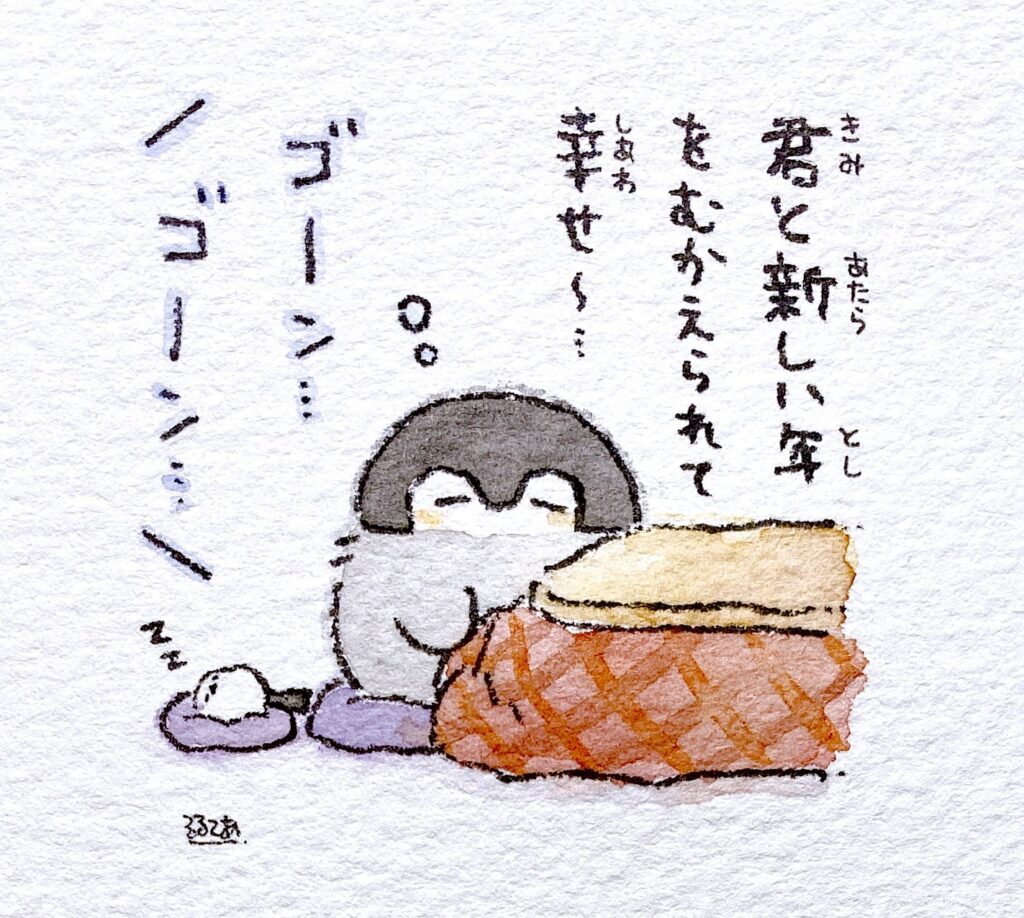 君と新しい年
きみ あたら とし
をむかえられて
幸せ〜…
しあわ
ゴーン…
ゴーン…
zzz
るるてあ